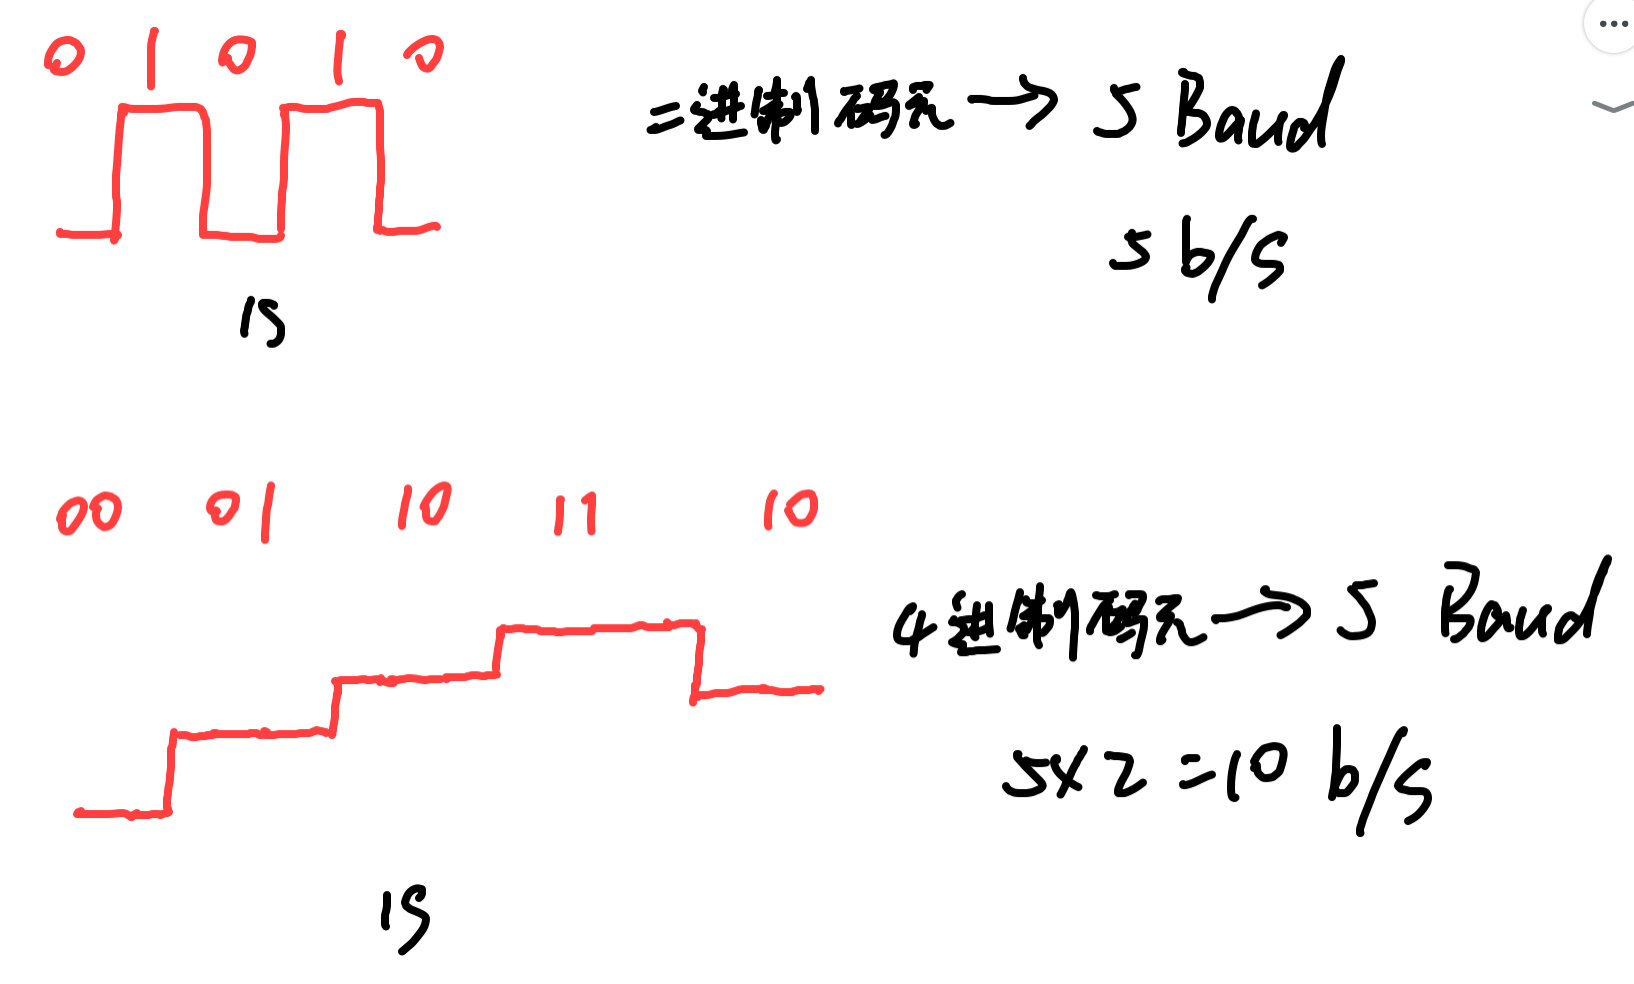 0 1 0 1 0
二进制码元→ 5 Baud
5 b/s
1s
00 01 10 11 10
4进制码元→ 5 Baud
5×2=10 b/s
1s